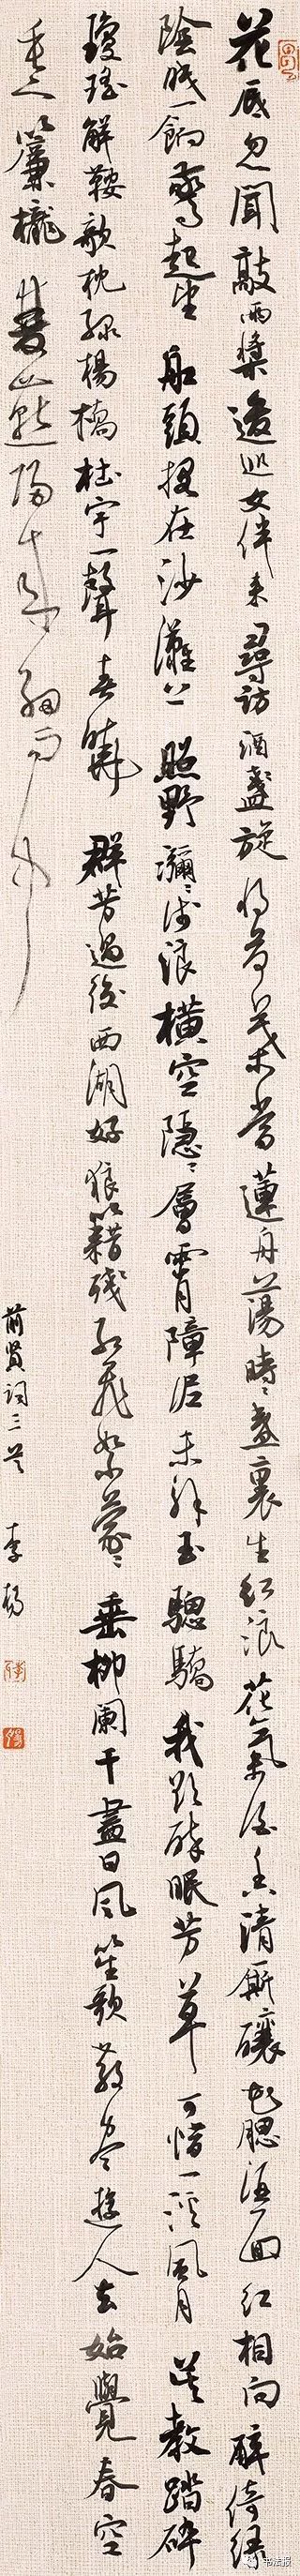 花底忽闻敲兩槳逡巡女伴来尋訪酒盞旋将荷葉當蓮舟蕩時時盞裏生紅浪花氣酒香清厮釀花腮酒面紅相向醉倚緑
陰眠一餉驚起望船頭擱在沙灘上照野瀰瀰浅浪橫空隱隱層霄障泥未解玉驄驕我欲醉眠芳草可惜一溪風月莫教踏碎
瓊瑤解鞍欹枕綠楊橋杜宇一聲春曉群芳過後西湖好狼籍殘紅飛絮濛濛垂柳闌干盡日風笙歌散盡遊人去始覺春空
垂下簾櫳雙燕歸来細雨中
前賢词三首李楊
书法报